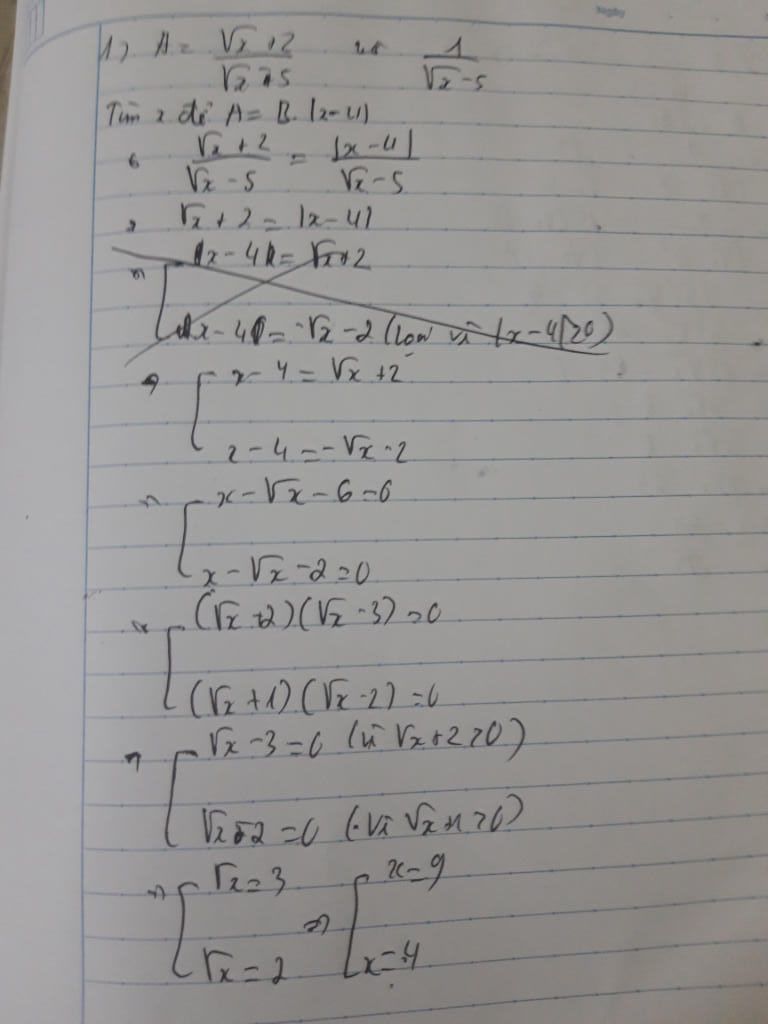 1) A = (√x + 2)/(√x - 5) và 1/(√x - 5)
Tìm x để A = B. |x - 4|
(√x + 2)/(√x - 5) = |x - 4|/(√x - 5)
√x + 2 = |x - 4|
x - 4 = √x + 2
x - 4 = -√x - 2 (loại vì |x - 4| ≥ 0)
⇒ [ x - 4 = √x + 2
x - 4 = -√x - 2
⇒ [ x - √x - 6 = 0
x - √x - 2 = 0
⇒ [ (√x + 2)(√x - 3) = 0
(√x + 1)(√x - 2) = 0
⇒ [ √x - 3 = 0 (vì √x + 2 > 0)
√x - 2 = 0 (vì √x + 1 > 0)
⇒ [ √x = 3 ⇒ [ x = 9
√x = 2 x = 4